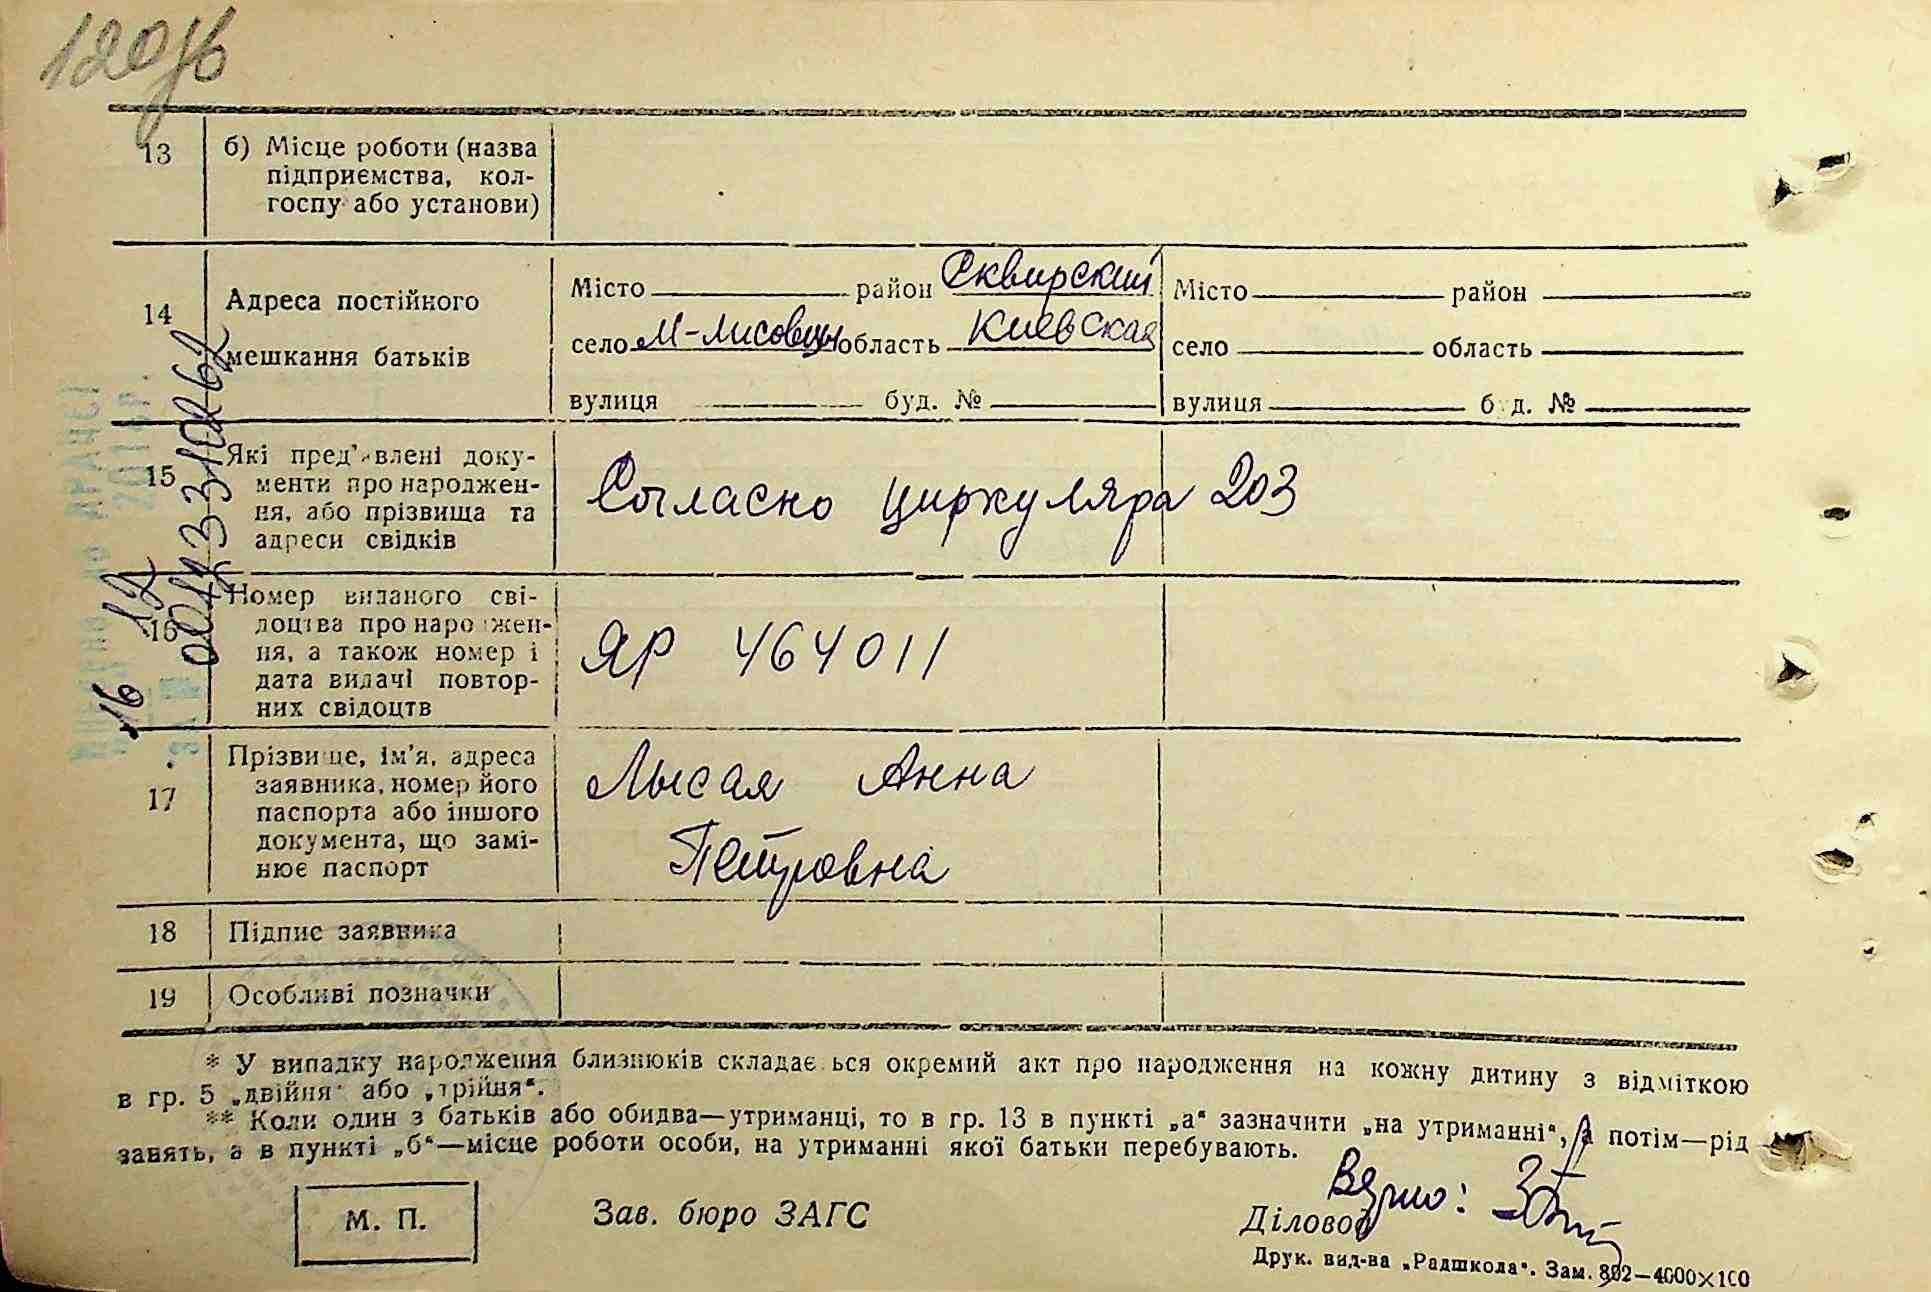 120зв
13 б) Місце роботи (назва
підприємства, кол-
госпу або установи)
14 Адреса постійного
мешкання батьків
Місто район Сквирский
село М-Лисовцы область Киевская
вулиця буд. №
Місто район
село область
вулиця буд. №
15 Які пред'явлені доку-
менти про народжен-
ня, або прізвища та
адреси свідків
Согласно циркуляра 203
16 Номер виданого сві-
доцтва про народжен-
ня, а також номер і
дата видачі повтор-
них свідоцтв
ЯР 464011
17 Прізвище, ім'я, адреса
заявника, номер його
паспорта або іншого
документа, що замі-
нює паспорт
Лысая Анна
Петровна
18 Підпис заявника
19 Особливі позначки
16 12
00123310262
* У випадку народження близнюків складається окремий акт про народження на кожну дитину з відміткою
в гр. 5 „двійня" або „трійня".
** Коли один з батьків або обидва—утриманці, то в гр. 13 в пункті „а" зазначити „на утриманні", а потім—рід
занять, а в пункті „б"—місце роботи особи, на утриманні якої батьки перебувають.
М. П.
Зав. бюро ЗАГС
Верно:
Діловод
Друк. вид-ва „Радшкола". Зам. 802—4000×100